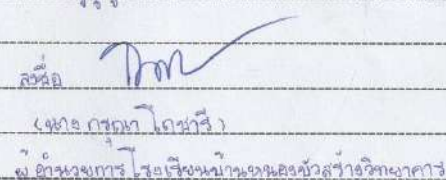 ลงชื่อ
(นาง กรุณา โถชารี)
ผู้อำนวยการโรงเรียนบ้านหนองบัวสร้างวิทยาคาร